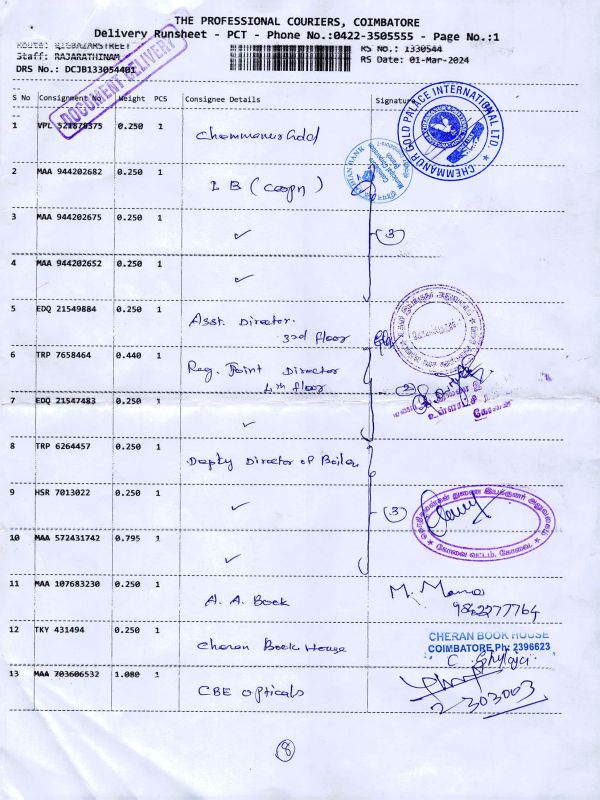 THE PROFESSIONAL COURIERS, COIMBATORE
Delivery Runsheet - PCT - Phone No.:0422-3505555 - Page No.:1
Route:
RS No.: 1330544
Staff: RAJARATHINAM
RS Date: 01-Mar-2024
DRS No.: DCJB133054401
DOCUMENT DELIVERY
S No Consignment No Weight PCS Consignee Details Signature
CHEMMANUR GOLD PALACE INTERNATIONAL LTD.
1 VPL 521878375 0.250 1 Chemmanur Gold
INDIAN BANK
2 MAA 944202682 0.250 1 I B (Coopn)
3 MAA 944202675 0.250 1 ✓ (3)
4 MAA 944202652 0.250 1 ✓
5 EDQ 21549884 0.250 1 Asst. Director
3rd floor
6 TRP 7658464 0.440 1 Reg. Joint Director
4th floor (2)
7 EDQ 21547483 0.250 1 ✓
8 TRP 6264457 0.250 1 Depty Director of Boiler
9 HSR 7013022 0.250 1 ✓ (3)
கோவை வட்டம், கோவை.
10 MAA 572431742 0.795 1 ✓
11 MAA 107683230 0.250 1 A. A. Book M. Mano
9842277764
12 TKY 431494 0.250 1 Cheran Book House CHERAN BOOK HOUSE
COIMBATORE Ph: 2396623
13 MAA 703606532 1.080 1 CBE opticals
2303003
(8)